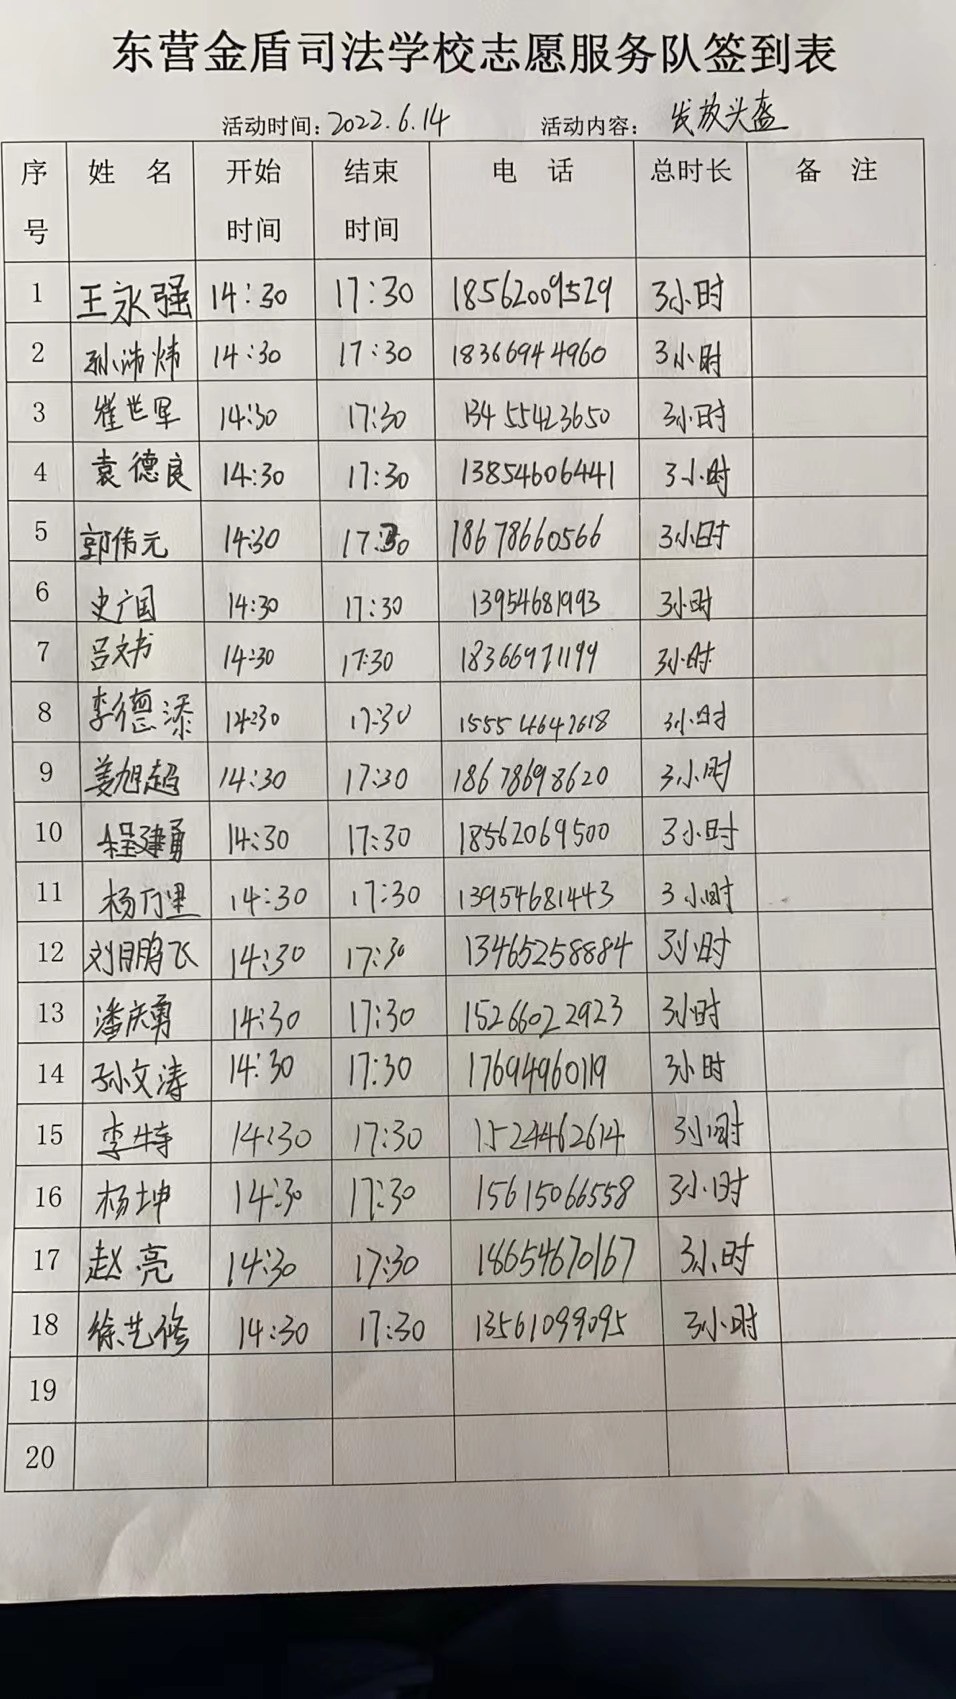 东营金盾司法学校志愿服务队签到表
活动时间：2022.6.14 活动内容：发放头盔
序号 姓 名 开始时间 结束时间 电 话 总时长 备 注
1 王永强 14:30 17:30 18562009529 3小时
2 孙沛炜 14:30 17:30 18366944960 3小时
3 崔世军 14:30 17:30 13455423650 3小时
4 袁德良 14:30 17:30 13854606441 3小时
5 郭伟元 14:30 17:30 18678660566 3小时
6 史广国 14:30 17:30 13954681993 3小时
7 吕文书 14:30 17:30 18366971199 3小时
8 李德添 14:30 17:30 15554647618 3小时
9 姜旭超 14:30 17:30 18678698620 3小时
10 程建勇 14:30 17:30 18562069500 3小时
11 杨万里 14:30 17:30 13954681443 3小时
12 刘鹏飞 14:30 17:30 13465258884 3小时
13 潘庆勇 14:30 17:30 15266022923 3小时
14 孙文涛 14:30 17:30 17694960119 3小时
15 李特 14:30 17:30 1524462614 3小时
16 杨坤 14:30 17:30 15615066558 3小时
17 赵亮 14:30 17:30 18654670167 3小时
18 徐艺修 14:30 17:30 13561099095 3小时
19
20